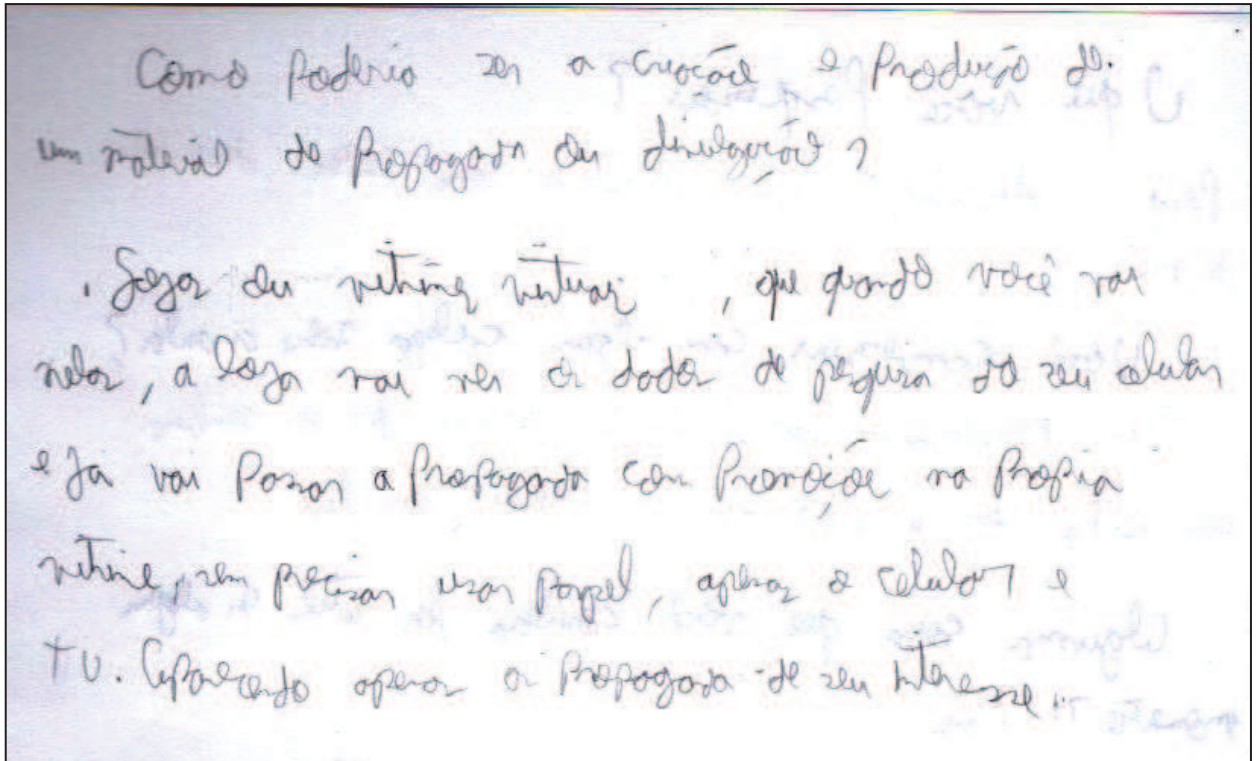 Como poderia ser a criação e Produção de
um material de Propaganda ou divulgação?
. Lojas ou vitrines virtuais, que quando você vai
nelas, a loja vai ver os dados de pesquisa do seu celular
e já vai Passar a Propaganda com Promoções na Propia
vitrine, sem precisar usar papel, apenas o celular e
TV. Aparecendo apenas a Propaganda de seu interesse...